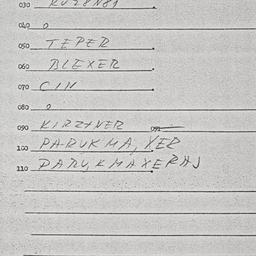 030
040 0
050 TEPER
060 BLEXER
070 CIN
080 0
090 KIRZXNER 091
100 PARUKMA, XER
110 PARUKMAXERAJ